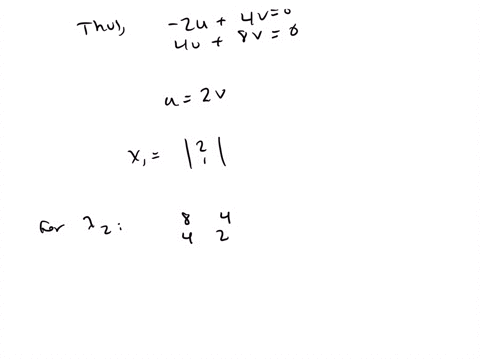 Thus, -2u + 4v = 0
4u + 8v = 0
u = 2v
x₁ = |2|
|1|
For λ₂: 8 4
4 2